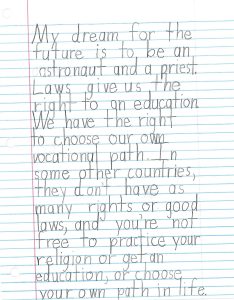 My dream for the
future is to be an
astronaut and a priest.
Laws give us the
right to an education
We have the right
to choose our own
vocational path. In
some other countries,
they don't have as
many rights or good
laws, and you're not
free to practice your
religion or get an
education, or choose
your own path in life.